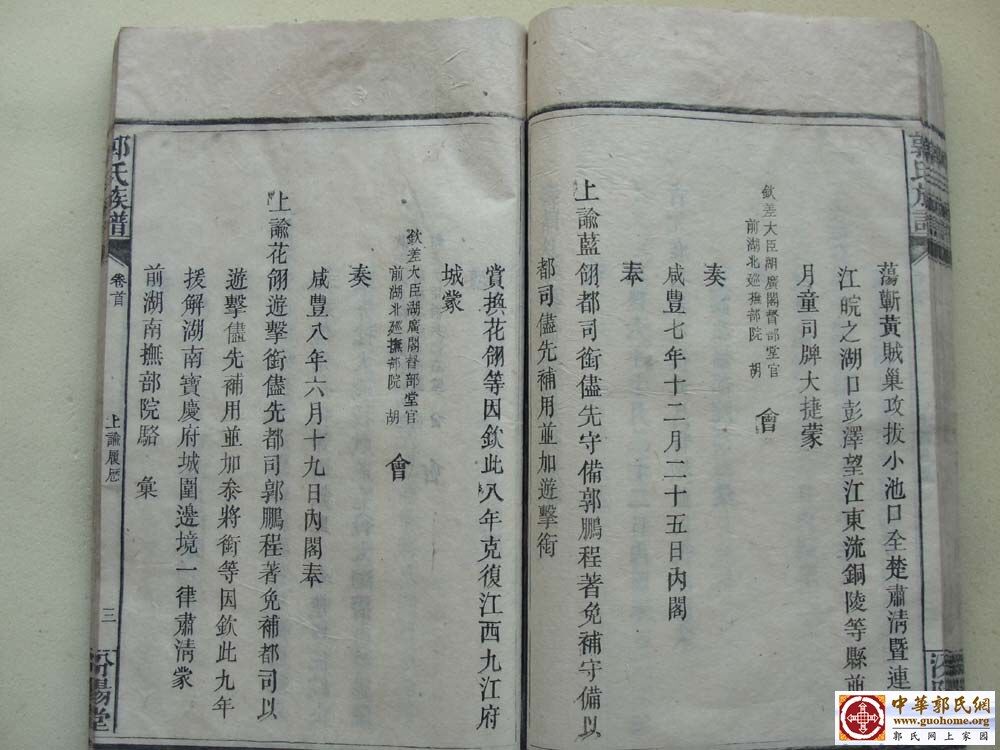 郭氏族譜
蕩蘄黃賊巢攻拔小池口全楚肅清暨連
江皖之湖口彭澤望江東流銅陵等縣並
月童司牌大捷蒙
欽差大臣湖廣閣督部堂官
前湖北巡撫部院 胡
會
奏
咸豐七年十二月二十五日內閣
奉
上諭藍翎都司銜儘先守備郭鵬程著免補守備以
都司儘先補用並加遊擊銜
賞換花翎等因欽此八年克復江西九江府
城蒙
欽差大臣湖廣閣督部堂官
前湖北巡撫部院 胡
會
奏
咸豐八年六月十九日內閣奉
上諭花翎遊擊銜儘先都司郭鵬程著免補都司以
遊擊儘先補用並加叅將銜等因欽此九年
援解湖南寶慶府城圍邊境一律肅清蒙
前湖南撫部院駱 彙
郭氏族譜
卷首
上諭履歷
三
汾陽堂
中華郭氏網
www.guohome.org
郭氏網上家園